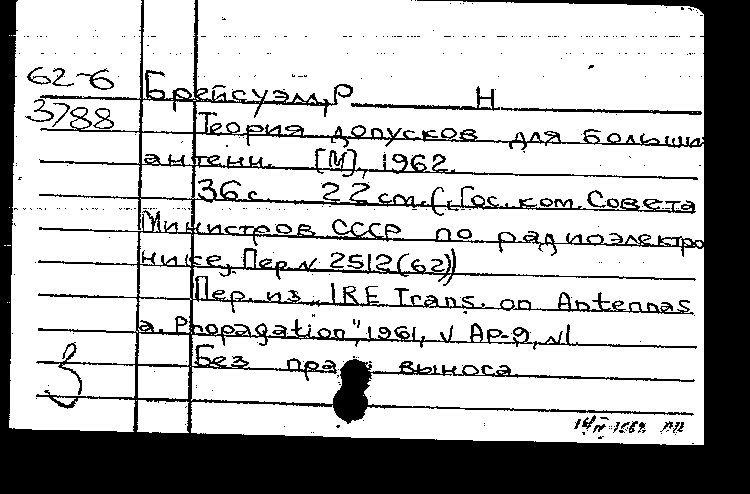 62-6 Брейсуэлл, Р. Н
3788 Теория допусков для больши
антенн. [М], 1962.
36 с. 22 см. (Гос. ком. Совета
Министров СССР по радиоэлектро
нике, Пер. N 2512(62))
Пер. из "IRE Trans. on Antennas
a. Phopagation", 1961, v AP-9, N1.
Без пра выноса
3